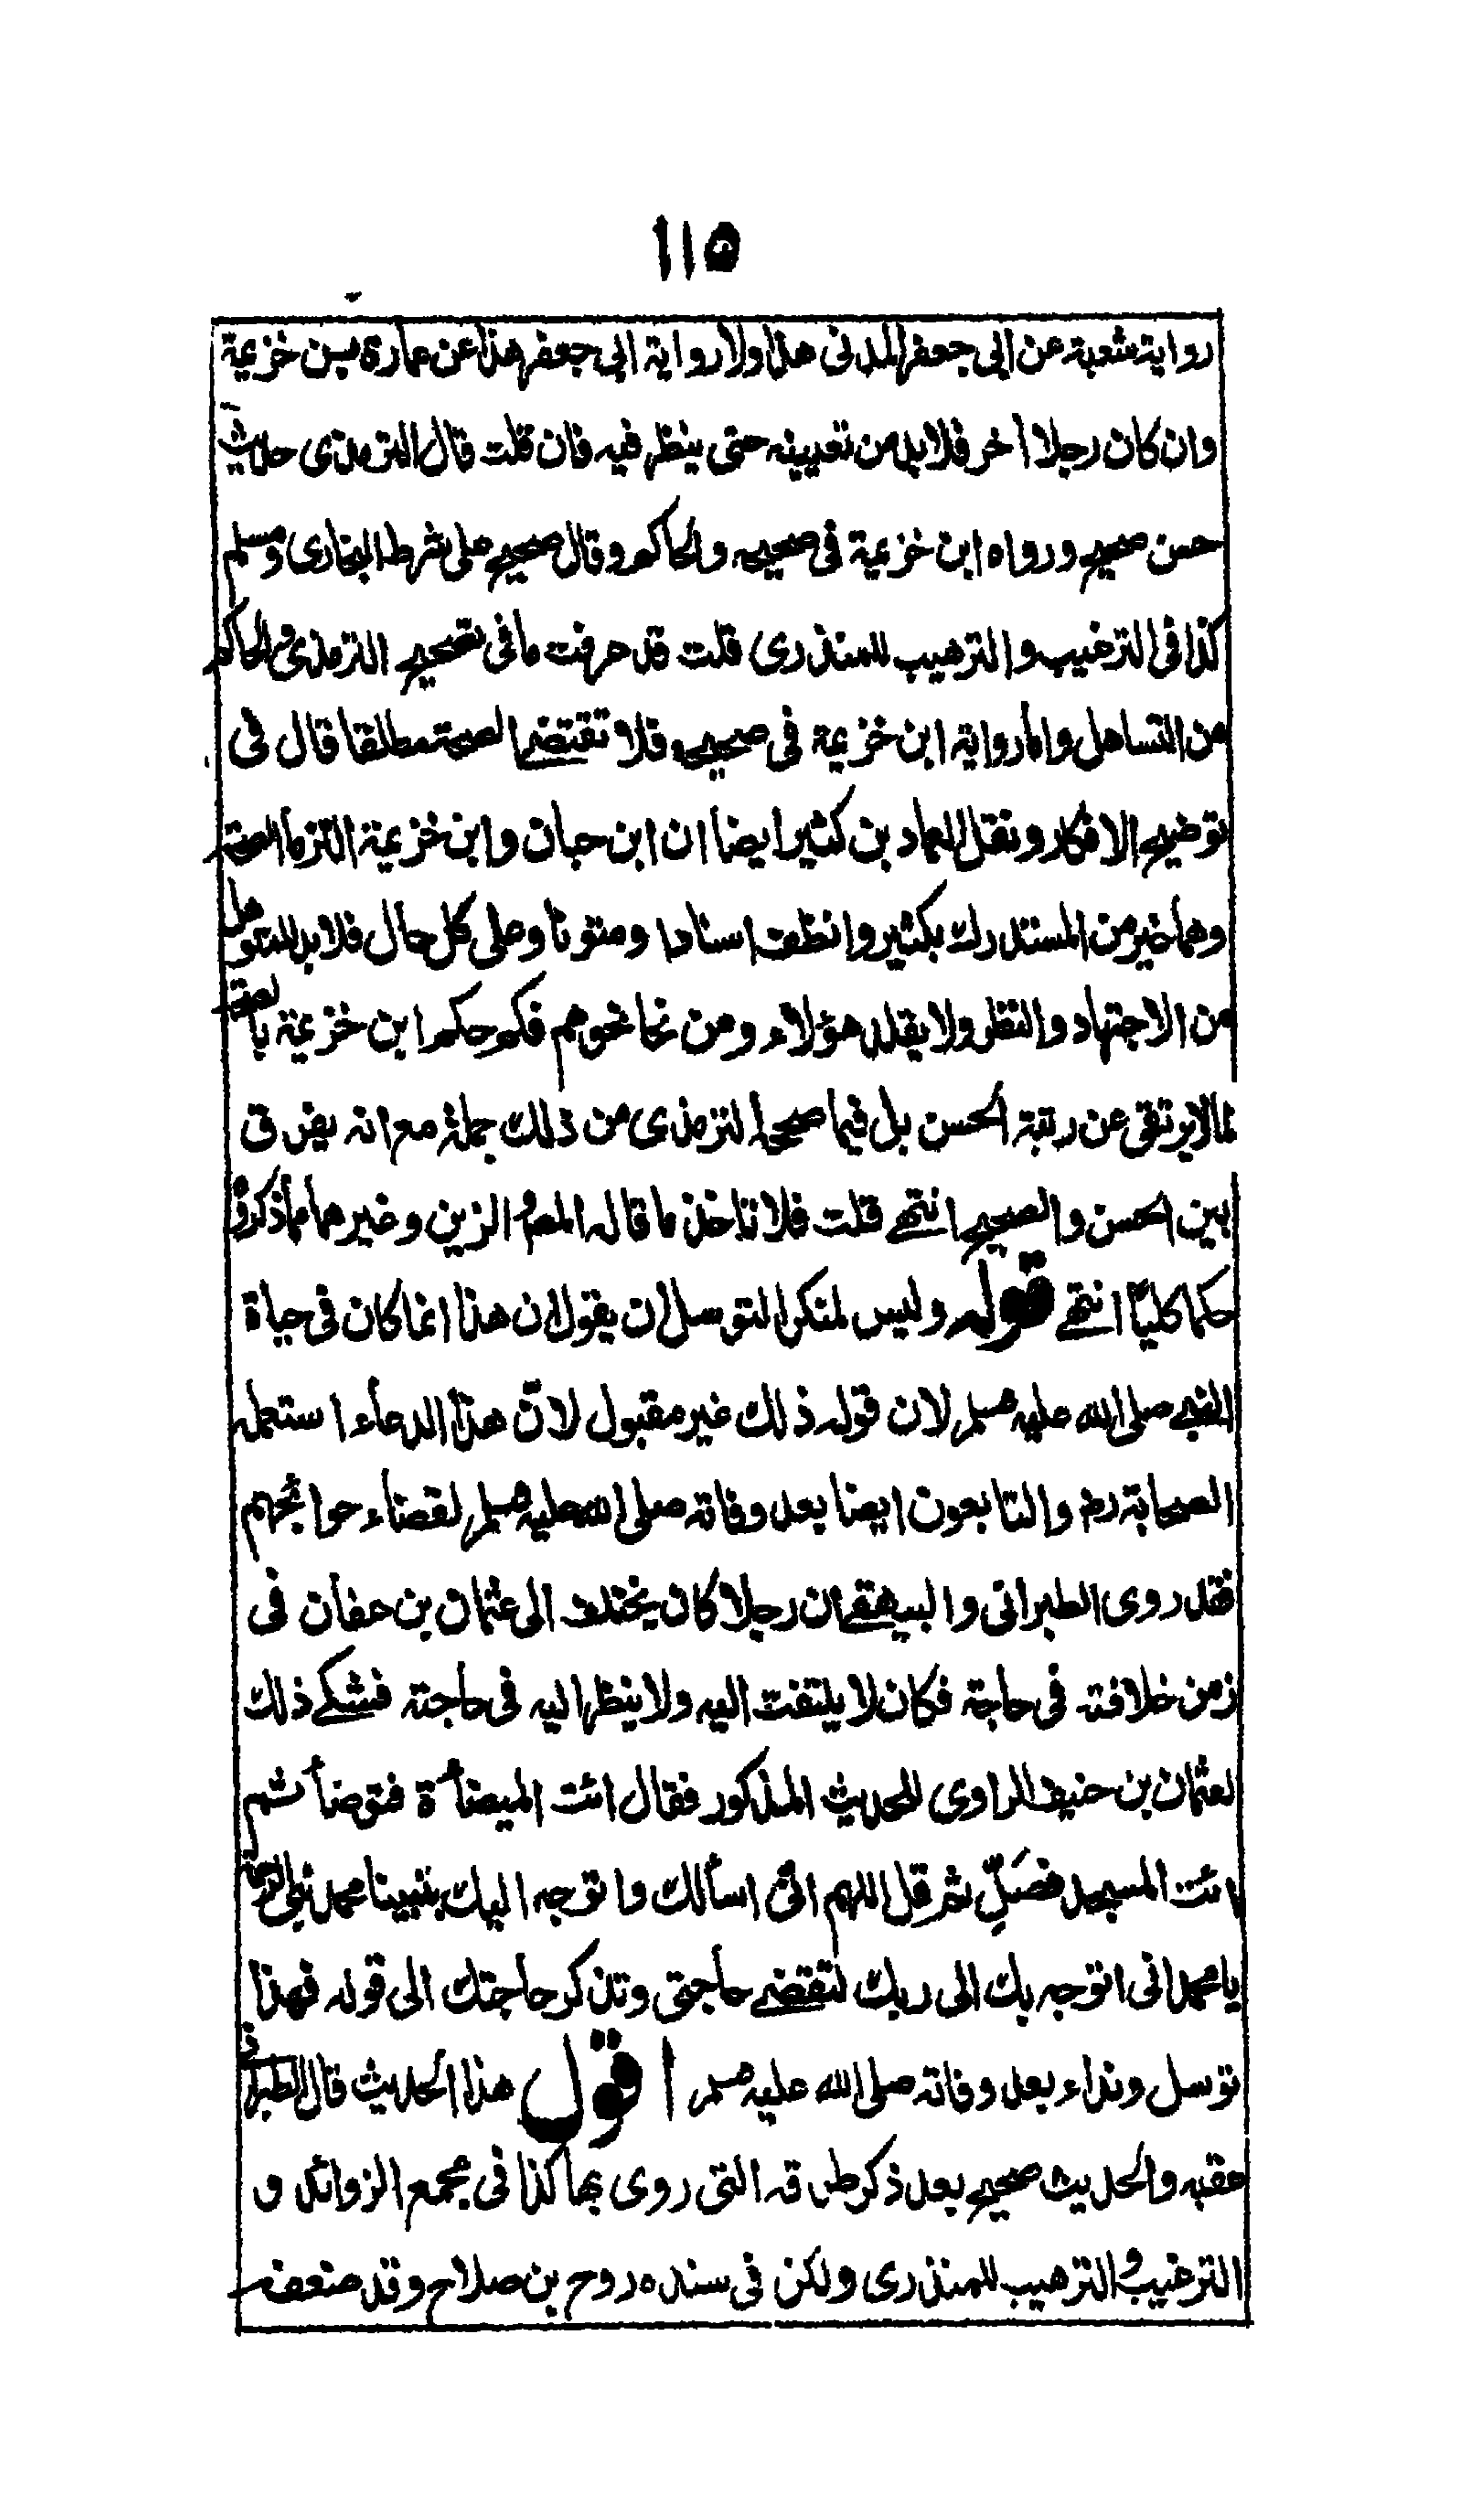 ١١٥
رواية شعبة عن ابى جعفر المدنى هذا ولا رواية ابى جعفر هذا عن عمارة بن خزيمة
وان كان رجلا اخر فلا بد من تعيينه حتى ينظر فيه فان قلت قال الترمذى حديث
حسن صحيح ورواه ابن خزيمة فى صحيحه والحاكم وقال صحيح على شرط البخارى ومسلم
كذا فى الترغيب والترهيب للمنذرى قلت قد عرفت ما فى تصحيح الترمذى والحاكم
من التساهل واما رواية ابن خزيمة فى صحيحه فلا تقتضى الصحة مطلقا قال فى
توضيح الافكار ونقل العماد بن كثير ايضا ان ابن حبان وابن خزيمة التزما الصحة
وهما خير من المستدرك بكثير وانظف اسنادا ومتونا وعلى كل حال فلا بد للمتوصل
من الاجتهاد والنقل ولا يقلد هؤلاء ومن نحا نحوهم فكم حكم ابن خزيمة بالصحة
لما لا يرتقى عن رتبة الحسن بل فيما صححه الترمذى من ذلك جملة مع انه يفرق
بين الحسن والصحيح انتهى قلت فلا تاخذ ما قاله المصنف الزين وغيرهما مما ذكروا
حكما كليا انتهى قوله وليس لمنكر التوسل ان يقول ان هذا انما كان فى حياة
النبى صلى الله عليه وسلم لان قوله ذلك غير مقبول لان هذا الدعاء استعمله
الصحابة رضـ والتابعون ايضا بعد وفاته صلى الله عليه وسلم لقضاء حوائجهم
فقد روى الطبرانى والبيهقى ان رجلا كان يختلف الى عثمان بن عفان فى
زمن خلافته فى حاجة فكان لا يلتفت اليه ولا ينظر اليه فى حاجته فشكى ذلك
لعثمان بن حنيف الراوى للحديث المذكور فقال ائت الميضأة فتوضأ ثم
ائت المسجد فصَلِّ ثم قل اللهم انى اسألك واتوجه اليك بنبينا محمد نبى الرحمة
يا محمد انى اتوجه بك الى ربك لتقضى حاجتى وتذكر حاجتك الى قوله فهذا
توسل ونداء بعد وفاته صلى الله عليه وسلم اقول هذا الحديث قال الطبرانى
عقبه والحديث صحيح بعد ذكر طرقه التى روى بها كذا فى مجمع الزوائد و
الترغيب والترهيب للمنذرى ولكن فى سنده روح بن صلاح وقد ضعفه